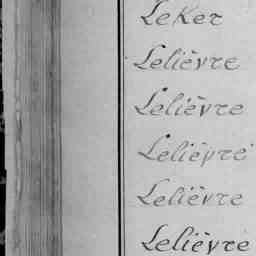 LeKer
Lelièvre
Lelièvre
Lelièvre
Lelièvre
Lelièvre